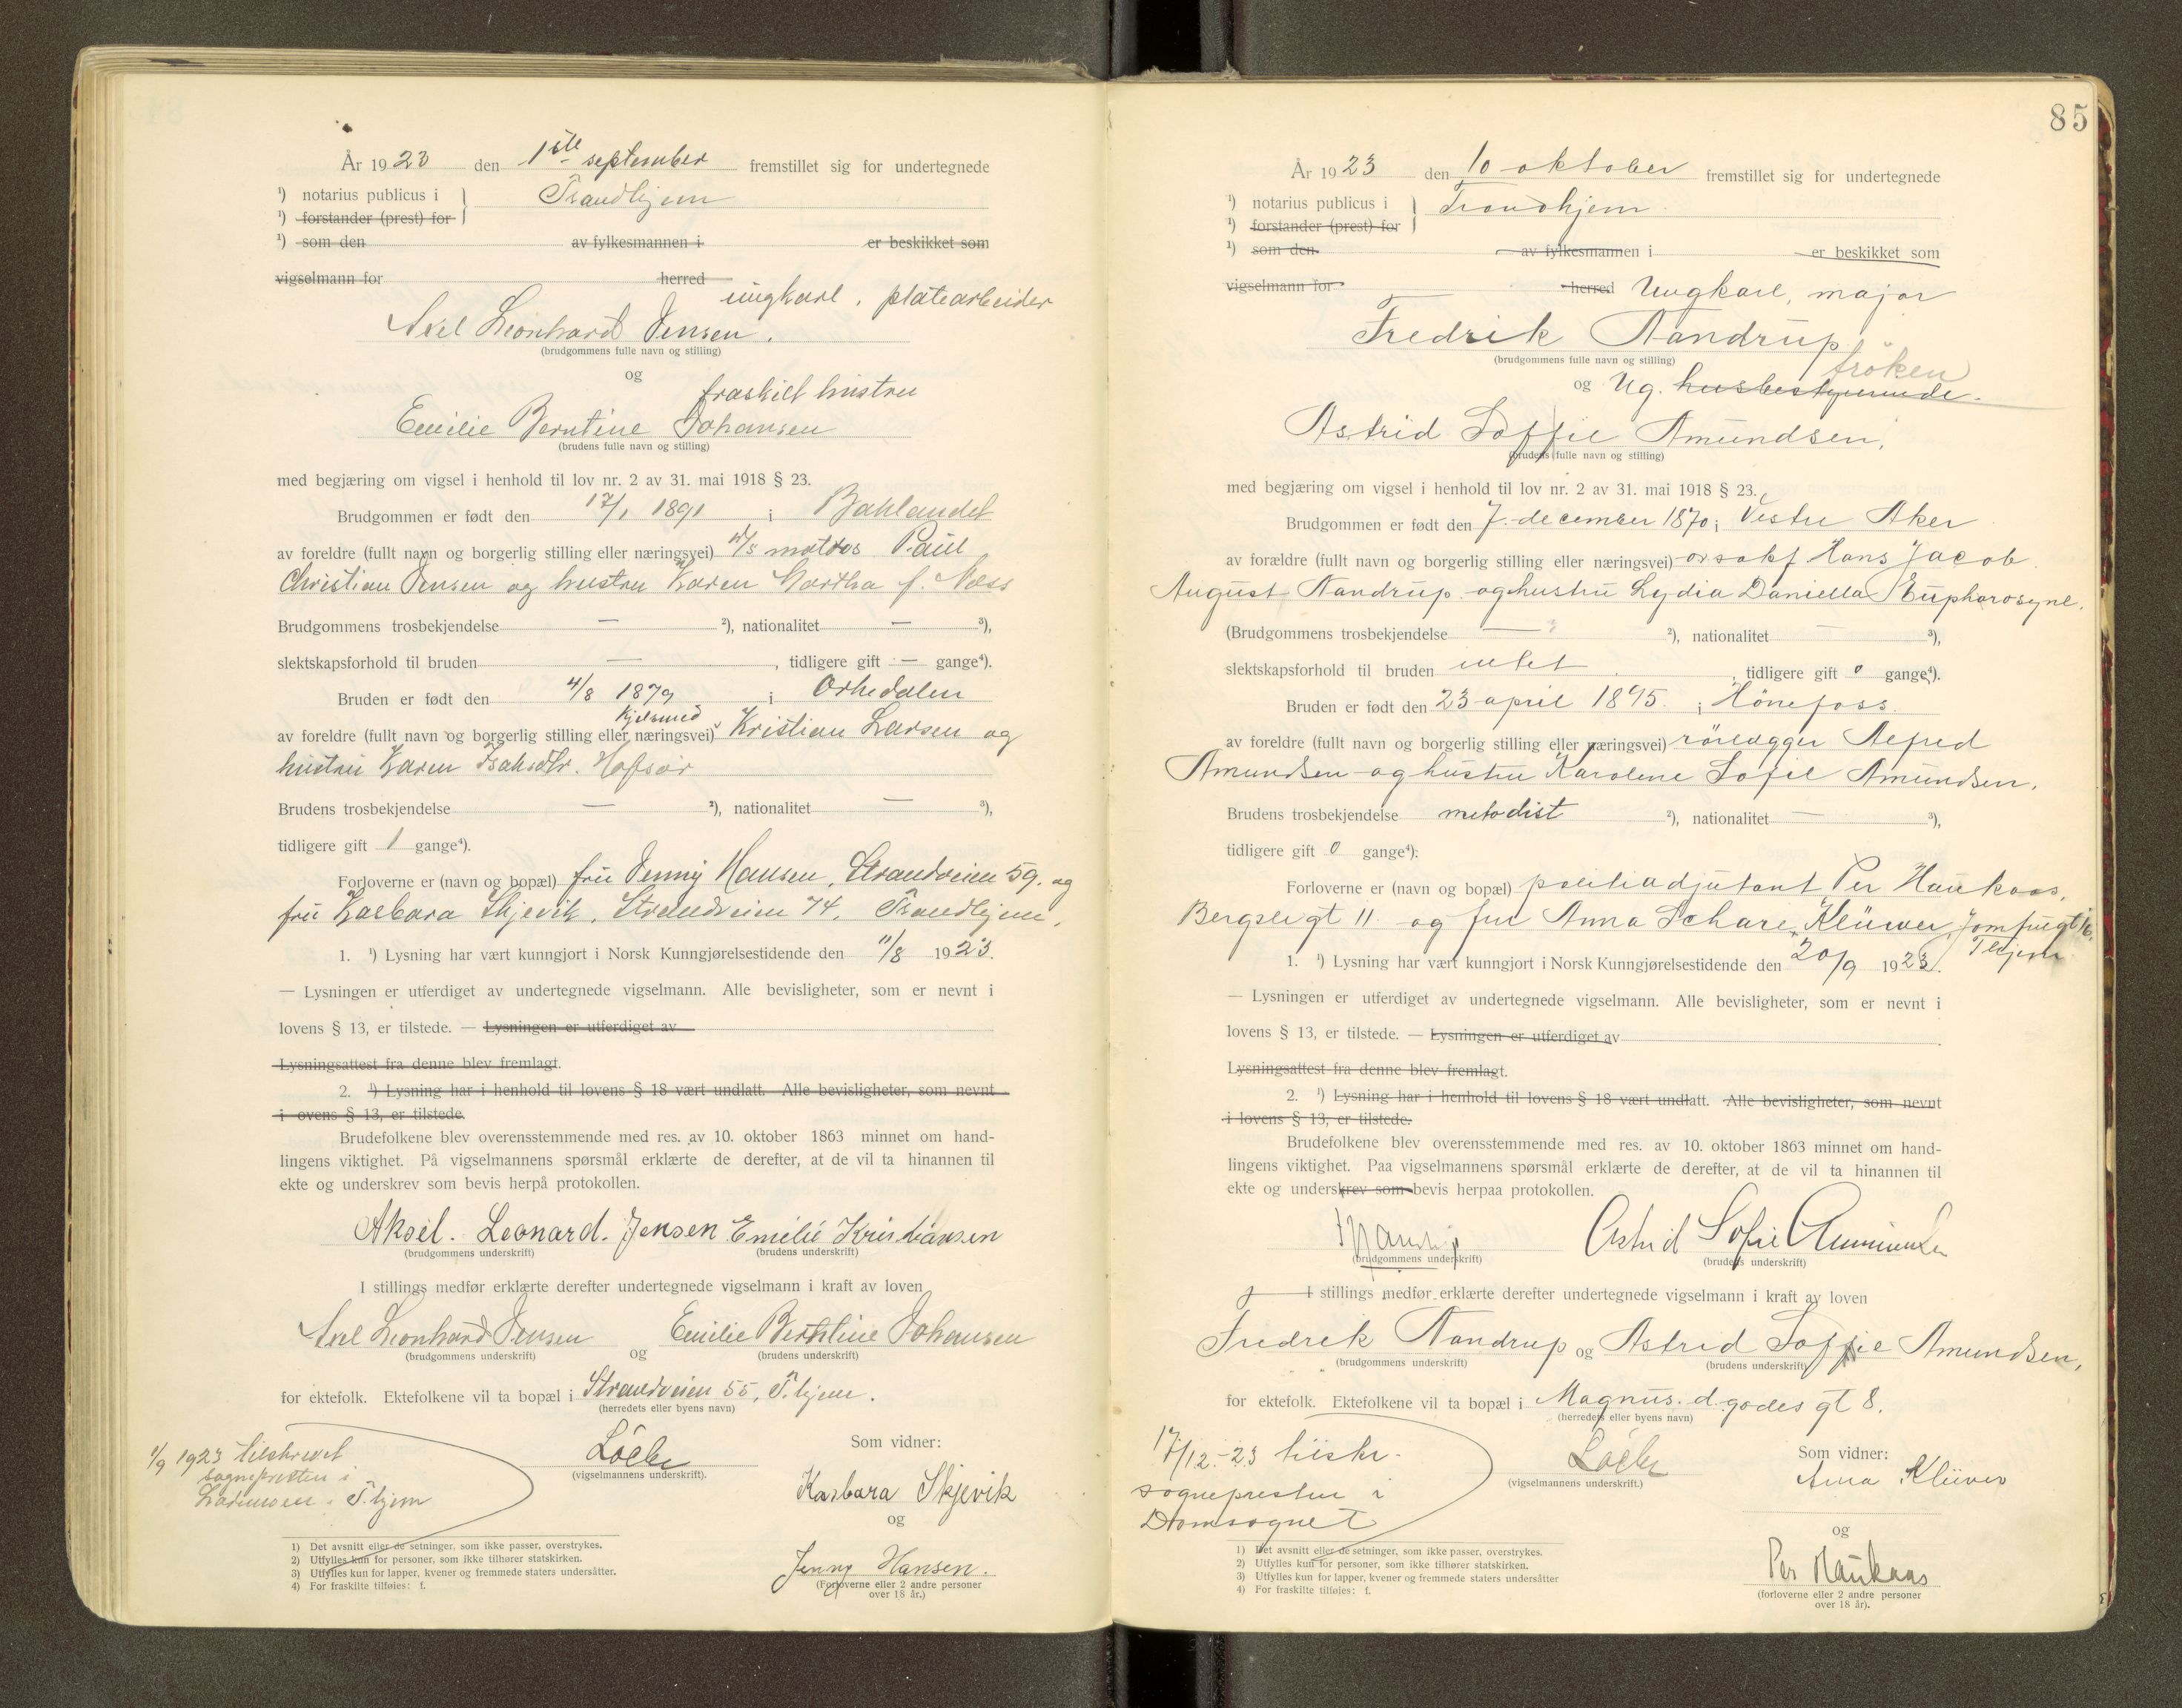 År 1923 den 1ste september fremstillet sig for undertegnede
¹) notarius publicus i } Trondhjem
¹) forstander (prest) for
¹) som den av fylkesmannen i er beskikket som
vigselmann for herred
ungkarl, platearbeider
Axel Leonhard Jensen.
(brudgommens fulle navn og stilling)
og
fraskilt hustru
Emilie Berntine Johansen
(brudens fulle navn og stilling)
med begjæring om vigsel i henhold til lov nr. 2 av 31. mai 1918 § 23.
Brudgommen er født den 17/1 1891 i Baklandet
av foreldre (fullt navn og borgerlig stilling eller næringsvei) matros Paul
Christian Jensen og hustru Karen Martha f. Næss
Brudgommens trosbekjendelse — ²), nationalitet — ³),
slektskapsforhold til bruden — , tidligere gift — gange⁴).
Bruden er født den 4/8 1879 i Orkedalen
Kjelsmed
av foreldre (fullt navn og borgerlig stilling eller næringsvei) Kristian Larsen og
hustru Karen Isaksdtr. Hofsør
Brudens trosbekjendelse — ²), nationalitet — ³),
tidligere gift 1 gange⁴).
Forloverne er (navn og bopæl) fru Jenny Hansen, Strandveien 59. og
fru Barbara Skjevik, Strandveien 74, Trondhjem.
1. ¹) Lysning har vært kunngjort i Norsk Kunngjørelsestidende den 11/8 1923.
— Lysningen er utferdiget av undertegnede vigselmann. Alle bevisligheter, som er nevnt i
lovens § 13, er tilstede. — Lysningen er utferdiget av
Lysningsattest fra denne blev fremlagt.
2. ¹) Lysning har i henhold til lovens § 18 vært undlatt. Alle bevisligheter, som nevnt
i ovens § 13, er tilstede.
Brudefolkene blev overensstemmende med res. av 10. oktober 1863 minnet om hand-
lingens viktighet. På vigselmannens spørsmål erklærte de derefter, at de vil ta hinannen til
ekte og underskrev som bevis herpå protokollen.
Aksel. Leonard. Jensen Emilie Kristiansen
(brudgommens underskrift) (brudens underskrift)
I stillings medfør erklærte derefter undertegnede vigselmann i kraft av loven
Axel Leonhard Jensen og Emilie Berntine Johansen
(brudgommens underskrift) (brudens underskrift)
for ektefolk. Ektefolkene vil ta bopæl i Strandveien 55, T.hjem.
(herredets eller byens navn)
1/9 1923 tilskrevet
sognepresten i
Lademoen. T.hjem
(vigselmannens underskrift).
Som vidner:
Karbara Skjevik
og
Jenny Hansen.
(Forloverne eller 2 andre personer
over 18 år.)
1) Det avsnitt eller de setninger, som ikke passer, overstrykes.
2) Utfylles kun for personer, som ikke tilhører statskirken.
3) Utfylles kun for lapper, kvener og fremmede staters undersåtter.
4) For fraskilte tilføies: f.
85
År 1923 den 10 oktober fremstillet sig for undertegnede
¹) notarius publicus i } Trondhjem
¹) forstander (prest) for
¹) som den av fylkesmannen i er beskikket som
vigselmann for herred Ungkarl, major
Fredrik Nandrup
(brudgommens fulle navn og stilling)
frøken
og Ug. husbestyrerinde.
Astrid Soffie Amundsen,
(brudens fulle navn og stilling)
med begjæring om vigsel i henhold til lov nr. 2 av 31. mai 1918 § 23.
Brudgommen er født den 7. december 1870 i Vestre Aker
av forældre (fullt navn og borgerlig stilling eller næringsvei) orsakf Hans Jacob
August Nandrup og hustru Lydia Daniella Eupharosyne.
(Brudgommens trosbekjendelse — ²), nationalitet — ³),
slektskapsforhold til bruden intet , tidligere gift 0 gange⁴).
Bruden er født den 23 april 1895. i Hönefoss.
av foreldre (fullt navn og borgerlig stilling eller næringsvei) rörlægger Alfred
Amundsen og hustru Karolene Sofie Amundsen.
Brudens trosbekjendelse metodist ²), nationalitet — ³),
tidligere gift 0 gange⁴).
Forloverne er (navn og bopæl) politiadjutant Per Haukaas,
Bergsli gt 11. og fru Anna Klüwer, Jomfrugt 16,
T.hjem
1. ¹) Lysning har vært kunngjort i Norsk Kunngjørelsestidende den 20/9 1923.
— Lysningen er utferdiget av undertegnede vigselmann. Alle bevisligheter, som er nevnt i
lovens § 13, er tilstede. — Lysningen er utferdiget av
Lysningsattest fra denne blev fremlagt.
2. ¹) Lysning har i henhold til lovens § 18 vært undlatt. Alle bevisligheter, som nevnt
i lovens § 13, er tilstede.
Brudefolkene blev overensstemmende med res. av 10. oktober 1863 minnet om hand-
lingens viktighet. Paa vigselmannens spørsmål erklærte de derefter, at de vil ta hinannen til
ekte og underskrev som bevis herpaa protokollen.
Astrid Sofie Amundsen
(brudgommens underskrift) (brudens underskrift)
I stillings medfør erklærte derefter undertegnede vigselmann i kraft av loven
Fredrik Nandrup og Astrid Soffie Amundsen,
(brudgommens underskrift) (brudens underskrift)
for ektefolk. Ektefolkene vil ta bopæl i Magnus d. godes gt 8.
(herredets eller byens navn)
17/12-23 tilskr.
sognepresten i
Domsognet
(vigselmannens underskrift.)
Som vidner:
Anna Klüver
og
Per Haukaas
(forloverne eller 2 andre personer
over 18 år).
1) Det avsnitt eller de setninger, som ikke passer, overstrykes.
2) Utfylles kun for personer, som ikke tilhører statskirken.
3) Utfylles kun for lapper, kvener og fremmede staters undersåtter
4) For fraskilte tilføies: f.